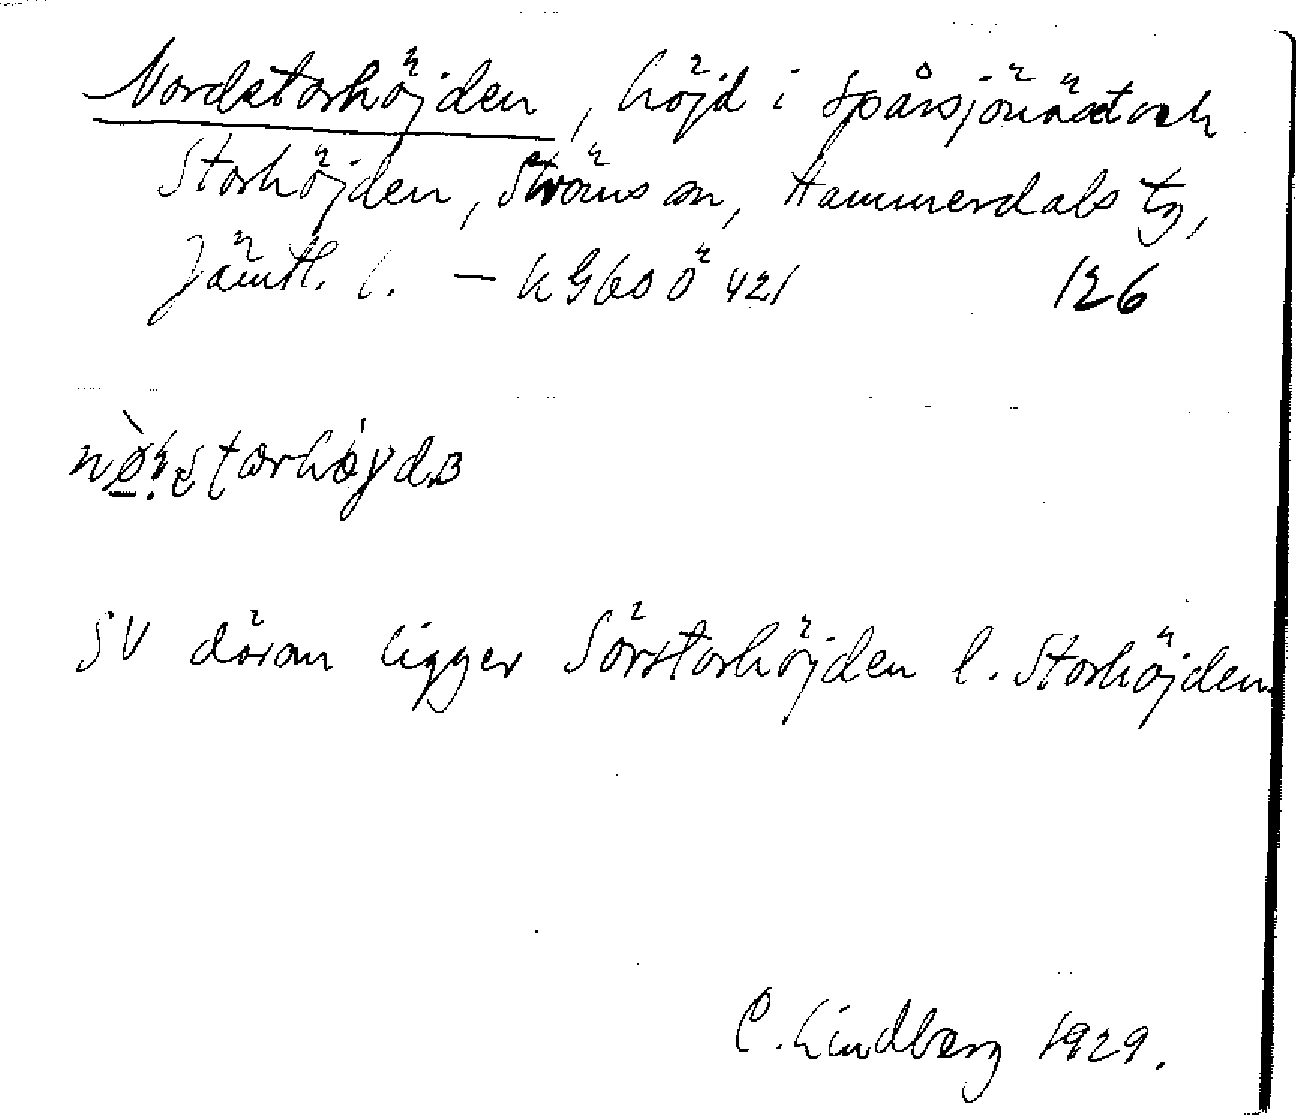 Nordstorhöjden, höjd i Spårsjönäset och
Storhöjden, Ströms sn, Hammerdals tg,
Jämtl. l. — k G 60 Ö 421 126
SV därom ligger Sörstorhöjden l. Storhöjden.
C. Lindberg 1929.